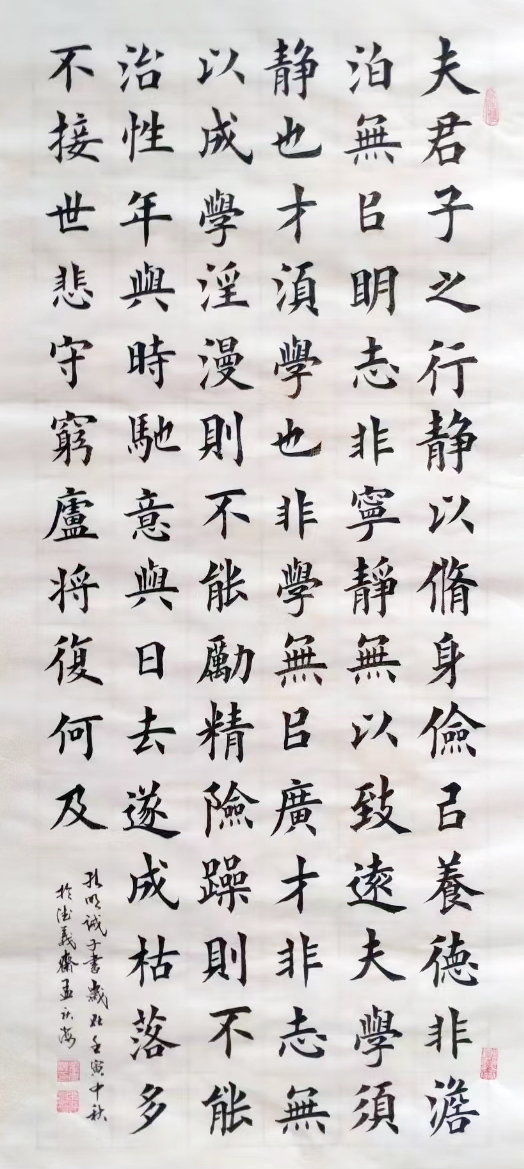 夫君子之行静以脩身儉㠯養德非澹
泊無㠯明志非寧靜無以致遠夫學須
静也才須學也非學無㠯廣才非志無
以成學淫漫則不能勵精險躁則不能
治性年與時馳意與日去遂成枯落多
不接世悲守窮廬将復何及
孔明诫子書歲在壬寅中秋
於德義齋孟海